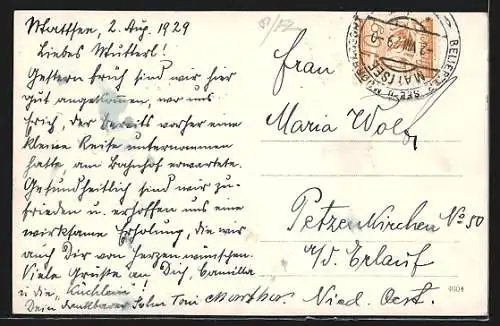 Mattsee, 2. Aug. 1929
Liebes Mutterl!
Gestern früh sind wir hier
gut angekommen, wo uns
Erich, der bereits vorher eine
kleine Reise unternommen
hatte, am Bahnhof erwartete.
Gesundheitlich sind wir zu-
frieden u. erhoffen uns eine
wirksame Erholung, die wir
auch Dir von Herzen wünschen.
Viele Grüße an Dich, Camilla
u. die "Küchlein"!
Dein dankbarer Sohn Toni Martha.
MATTSEE
2. VIII. 29
Frau
Maria Wolf
Petzenkirchen No 50
a/d. Erlauf
Nied. Oest.